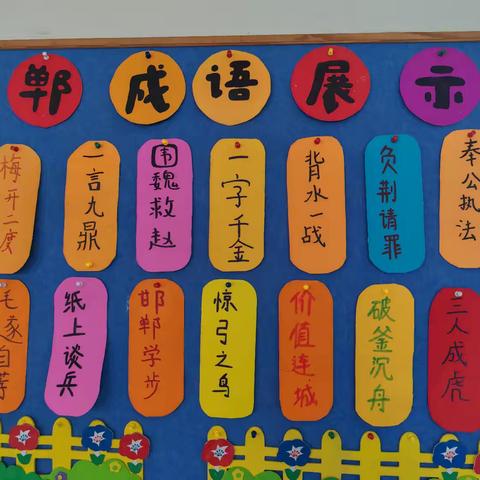 郸成语展示
梅开二度
一言九鼎
围魏救赵
一字千金
背水一战
负荆请罪
奉公执法
毛遂自荐
纸上谈兵
邯郸学步
惊弓之鸟
价值连城
破釜沉舟
三人成虎